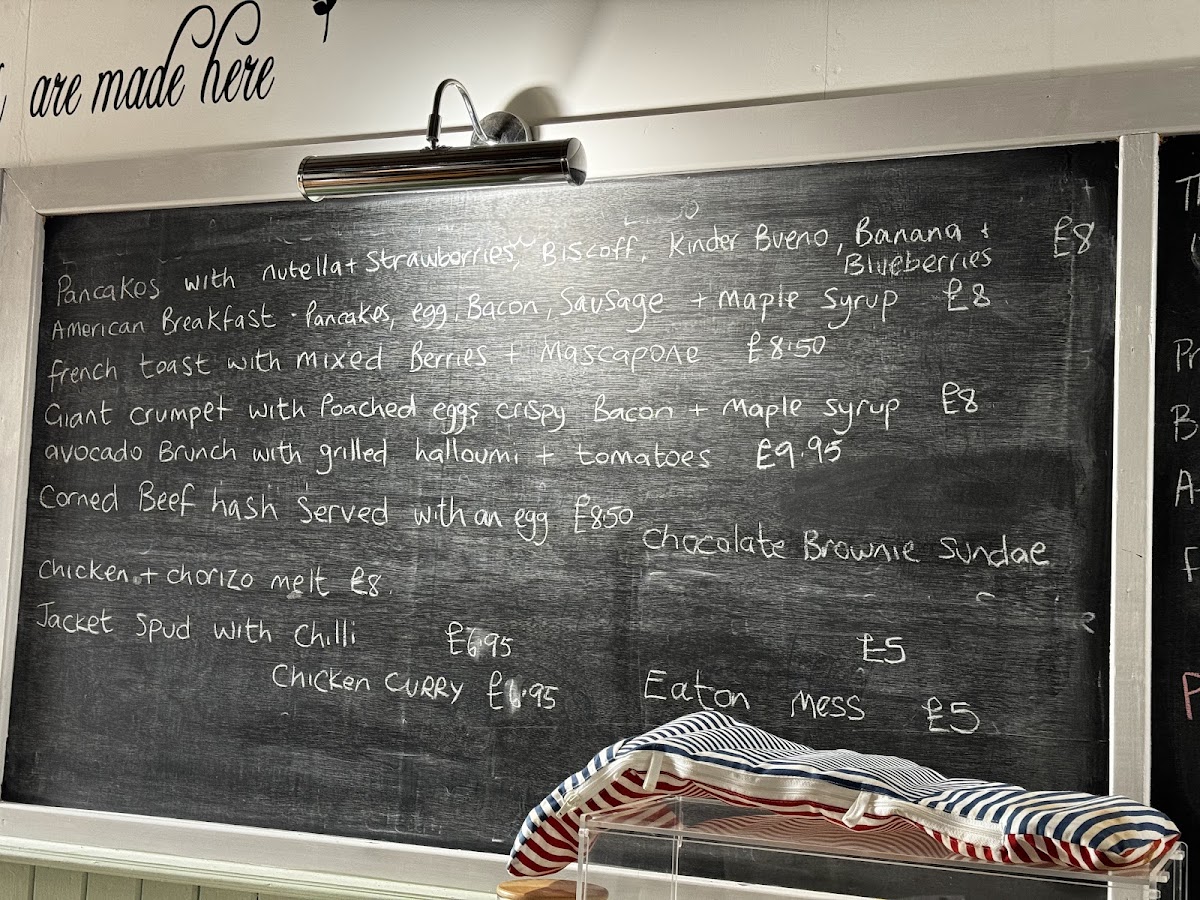 are made here
Pancakes with nutella + Strawborries, Biscoff, Kinder Bueno, Banana + £8
Blueberries
American Breakfast · Pancakes, egg, Bacon, Sausage + Maple Syrup £8
french toast with mixed Berries + Mascapone £8·50
Giant crumpet with Poached eggs crispy Bacon + Maple syrup £8
avocado Brunch with grilled halloumi + tomatoes £9.95
Corned Beef hash Served with an egg £8.50
Chocolate Brownie Sundae
Chicken + chorizo melt £8.
Jacket Spud with Chilli £6.95
£5
Chicken CURRY £6.95
Eaton Mess £5